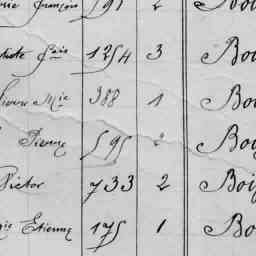 François 591 2 Boi
Fçois 1254 3 Boi
Mie 388 1 Boi
Pierre 595 2 Boi
Victor 733 2 Boi
Etienne 175 1 Boi